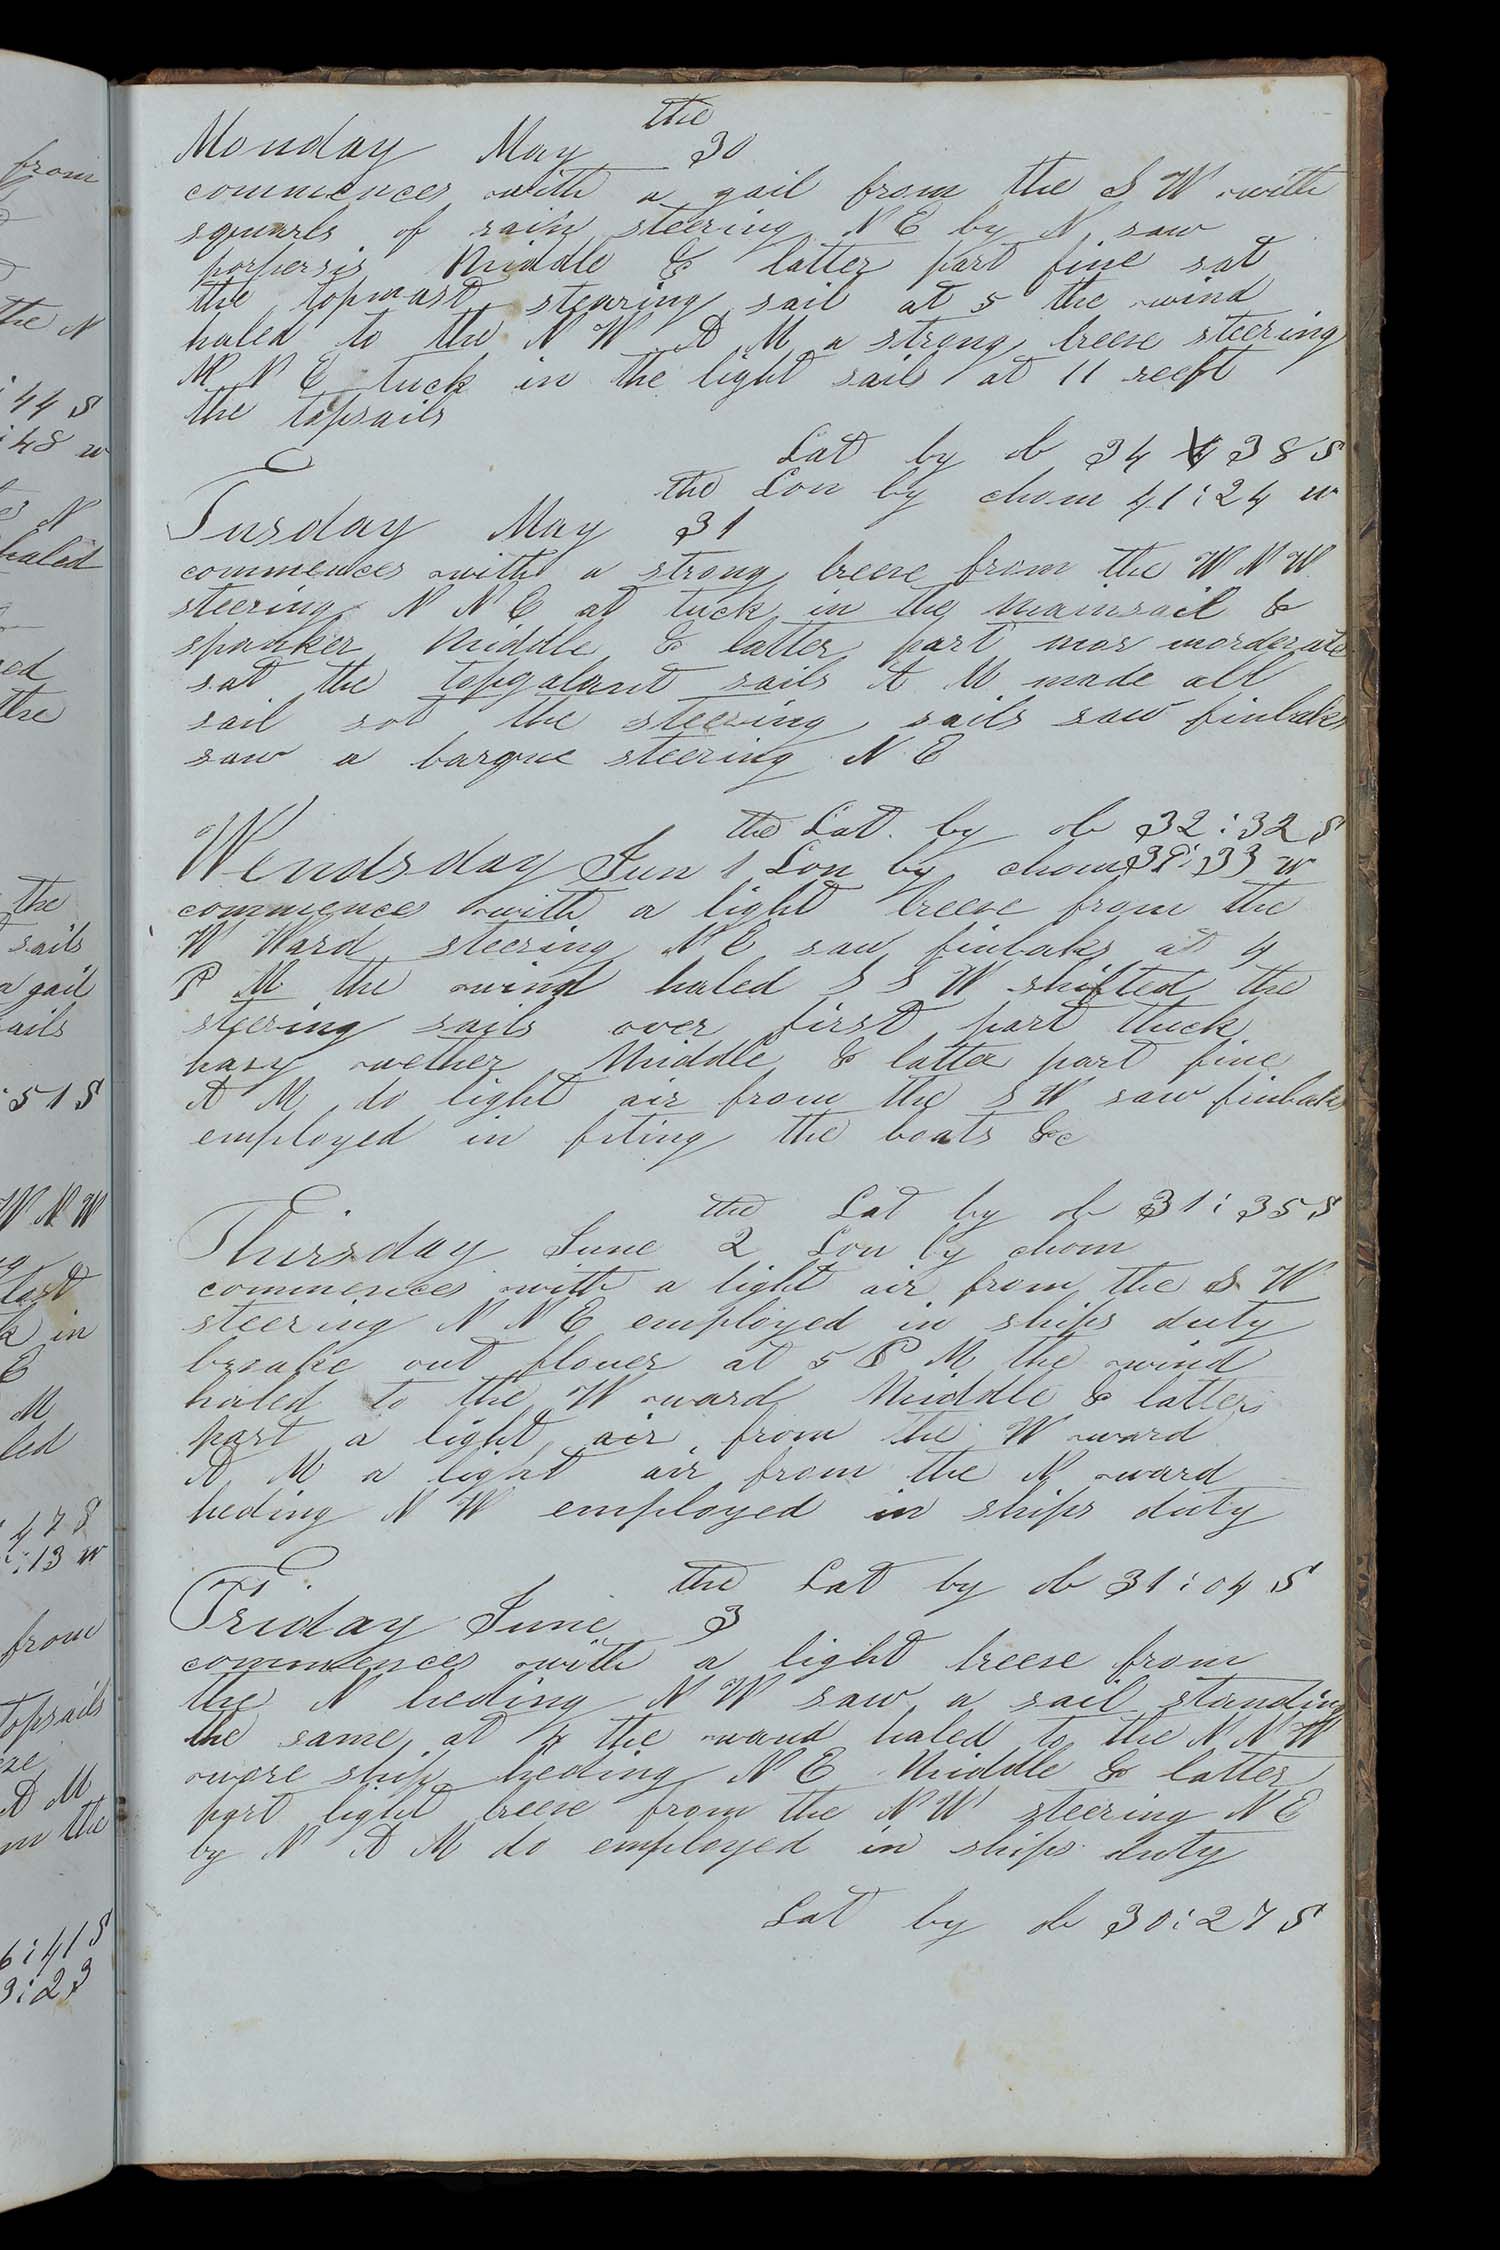 from
the N
44 S
48 w
N
haled
ed
the
the
sails
a gail
ails
51 S
W N W
last
k in
E
M
led
47 S
13 w
from
topsails
A M
the
6:41 S
3:23
the
Monday May 30
commences with a gail from the S W with
squarls of rain steering N E by N saw
porpersis Middle & latter part fine sat
the topmast stearing sail at 5 the wind
haled to the N W A M a strong breese steering
N N E tuck in the light sails at 11 reeft
the topsails
Lat by ob 34 38 S
the Lon by chom 41:24 w
Tusday May 31
commences with a strong breese from the W N W
steering N N E at tuck in the mainsail &
spanker Middle & latter part mor morderate
sat the topgalant sails A M made all
sail sot the steering sails saw finbaks
saw a barque steering N E
the Lat by ob 32:32 S
Wendsday Jun 1 Lon by chom 39:33 w
commences with a light breese from the
W Ward steering N E saw finbaks at 4
P M the wind haled S S W shifted the
steering sails over first part thick
hasy wether Middle & latter part fine
A M do light air from the S W saw finbaks
employed in fiting the boats &c
the Lat by ob 31:35 S
Thirsday June 2 Lon by chom
commences with a light air from the S W
steering N N E employed in ships duty
broake out flouer at 5 P M the wind
haled to the W ward Middle & latter
part a light air from the W ward
A M a light air from the N ward
heding N W employed in ships duty
the Lat by ob 31:04 S
Friday June 3
commences with a light breese from
the N heding N W saw a sail standing
the same at the wand haled to the N N W
wore ship heding N E Middle & latter
part light breese from the N W steering N E
by N A M do employed in ships duty
Lat by ob 30:27 S